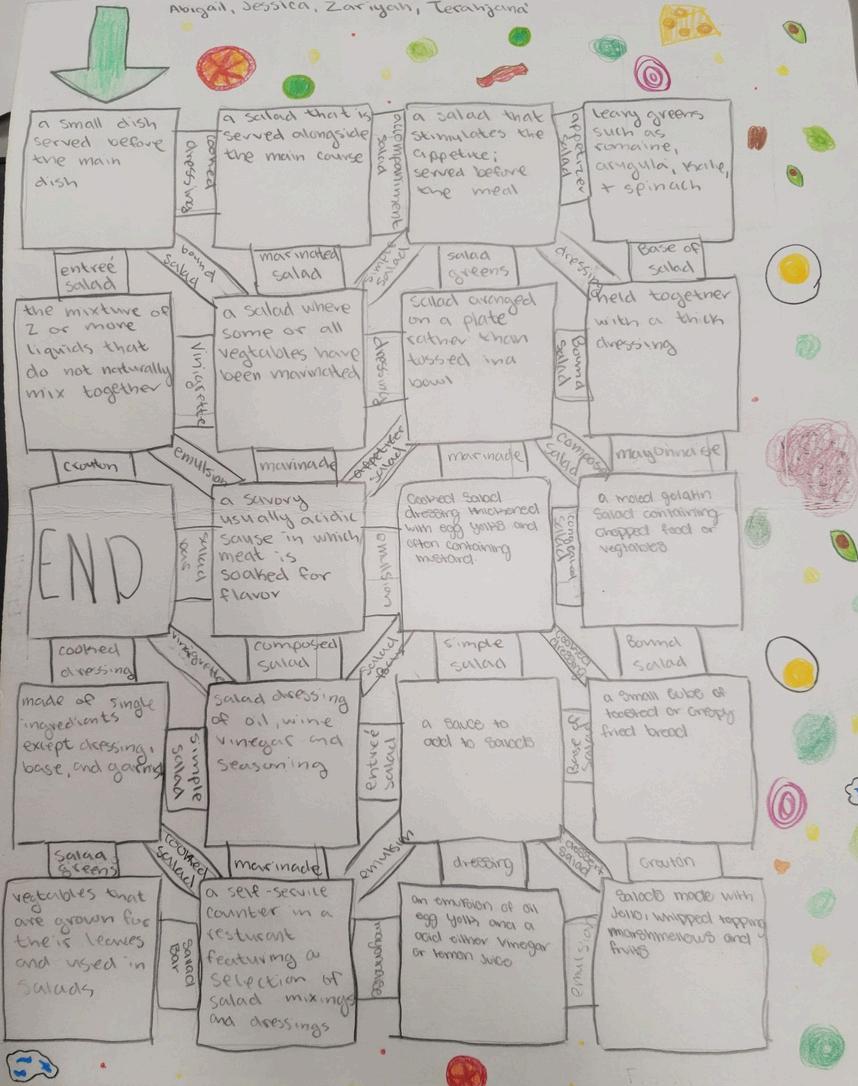 Abigail, Jessica, Zariyah, Terahjana
a small dish
served before
the main
dish
cooked
dressing
a salad that is
served alongside
the main course
accompaniment
salad
a salad that
stimulates the
appetite;
served before
the meal
appetizer
salad
leavy greens
such as
romaine,
arugula, kale,
+ spinach
entreé
salad
bound
salad
marinated
salad
simple
salad
salad
greens
dressing
Base of
salad
the mixture of
2 or more
liquids that
do not naturally
mix together
Viniarette
a salad where
some or all
vegtables have
been marinated
dressing
salad arranged
on a plate
rather than
tossed in a
bowl
Bound
salad
held together
with a thick
dressing
crouton
emulsion
marinade
appetizer
salad
marinade
compose
salad
mayonnaise
END
salad
bar
a savory
usually acidic
sause in which
meat is
soaked for
flavor
emulsion
Cooked Salad
dressing thickened
with egg yolks and
often containing
mustard.
congealed
salad
a moled gelatin
Salad containing
chopped food or
vegtables
cooked
dressing
vinigrette
composed
salad
salad
simple
salad
cooked
dressing
Bound
salad
made of single
ingredients
except dressing,
base, and garnish
Simple
Salad
salad dressing
of oil, wine
vinegar and
seasoning
entreé
salad
a sauce to
add to salads
Base of
salad
a small cube of
toasted or crispy
fried bread
salad
greens
cooked
salad
marinade
emulsion
dressing
dessert
salad
crouton
vegtables that
are grown for
their leaves
and used in
salads
Salad
Bar
a self-service
counter in a
resturant
featuring a
selection of
salad mixings
and dressings
mayonnaise
an emulsion of oil
egg yolk and a
acid either vinegar
or lemon juice
emulsion
Salads made with
Jello, whipped topping
marshmellows and
fruits